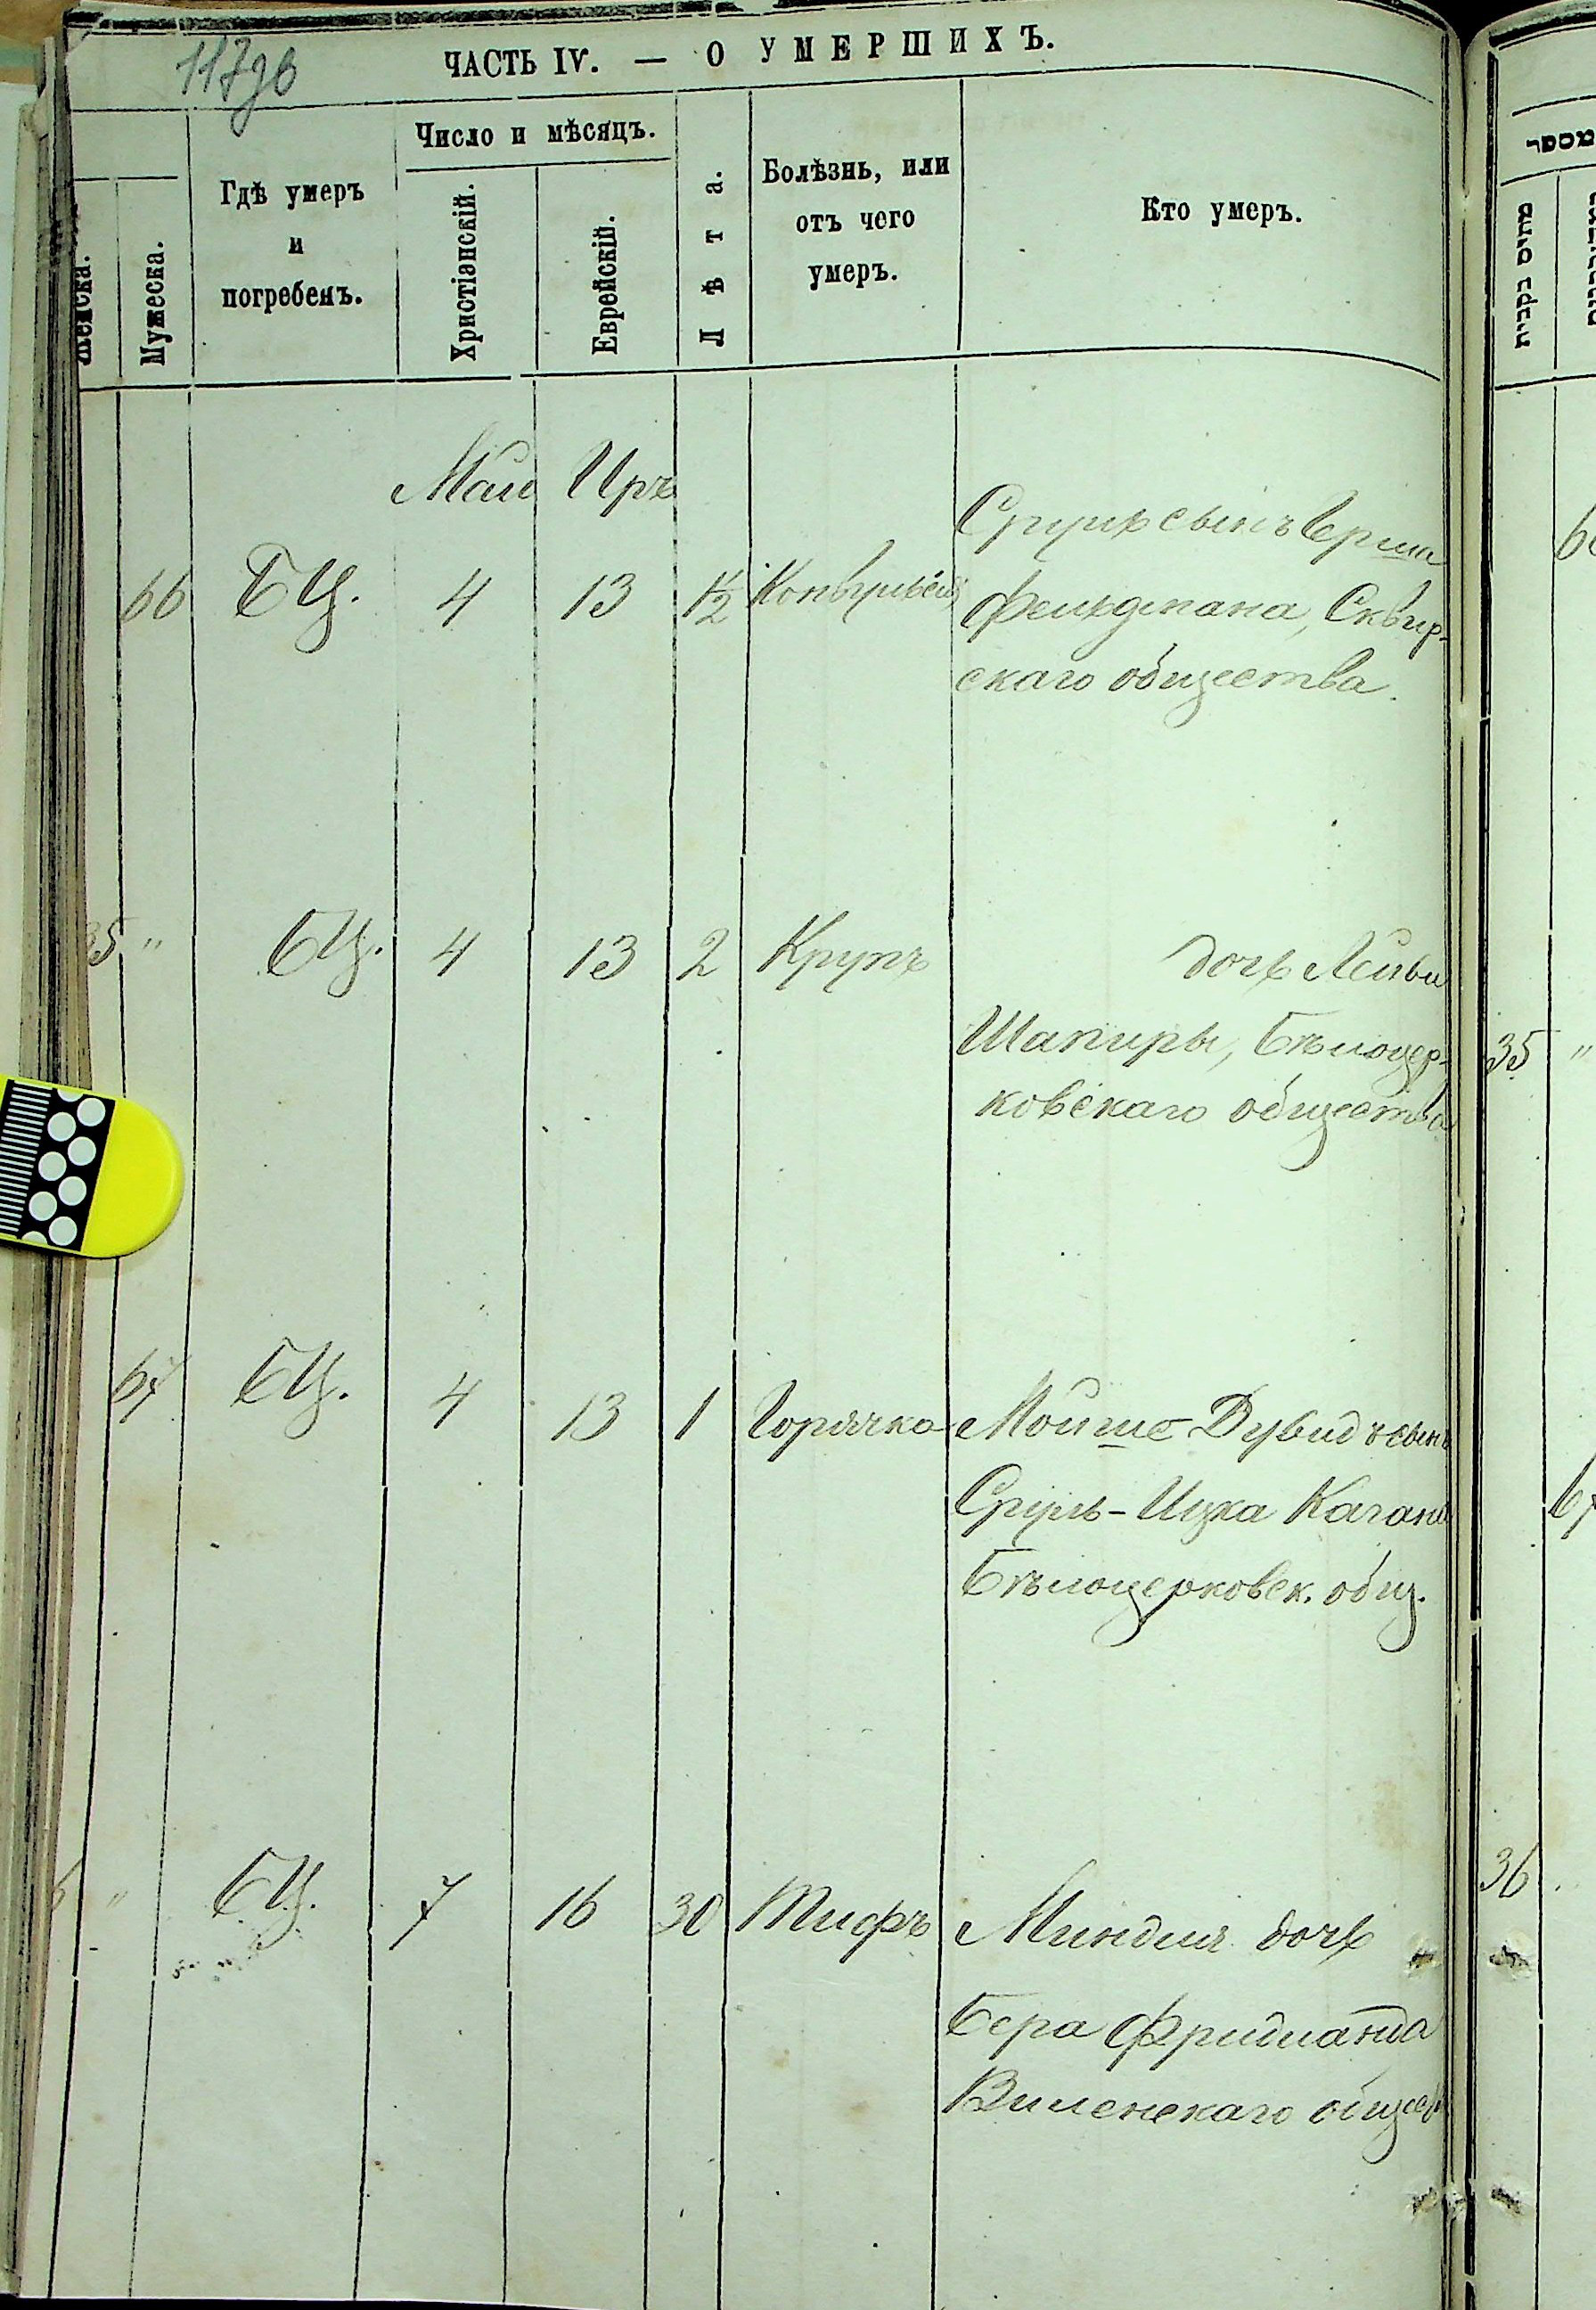 117об
ЧАСТЬ IV. — О УМЕРШИХЪ.
Женска.
Мужеска.
Гдѣ умеръ
и
погребенъ.
Число и мѣсяцъ.
Христіянскій.
Еврейскій.
Лѣта.
Болѣзнь, или
отъ чего
умеръ.
Кто умеръ.
Май Иръ
66 БЦ. 4 13 1/2
Сруль сынъ Герша
Фельдмана, Сквир-
скаго общества.
35 " БЦ. 4 13 2 Крупъ дочь Лейвы
Шапиры, Бѣлоцер-
ковскаго общества
67 БЦ. 4 13 1 Горячка Мойше Дувидъ сынъ
Сруль-Ицка Кагана
Бѣлоцерковск. общ.
" БЦ. 7 16 30 Тифъ Миндля дочь
Бера Фридланда
Виленскаго общест
מספר
מתים נקבות
35 "
67
36